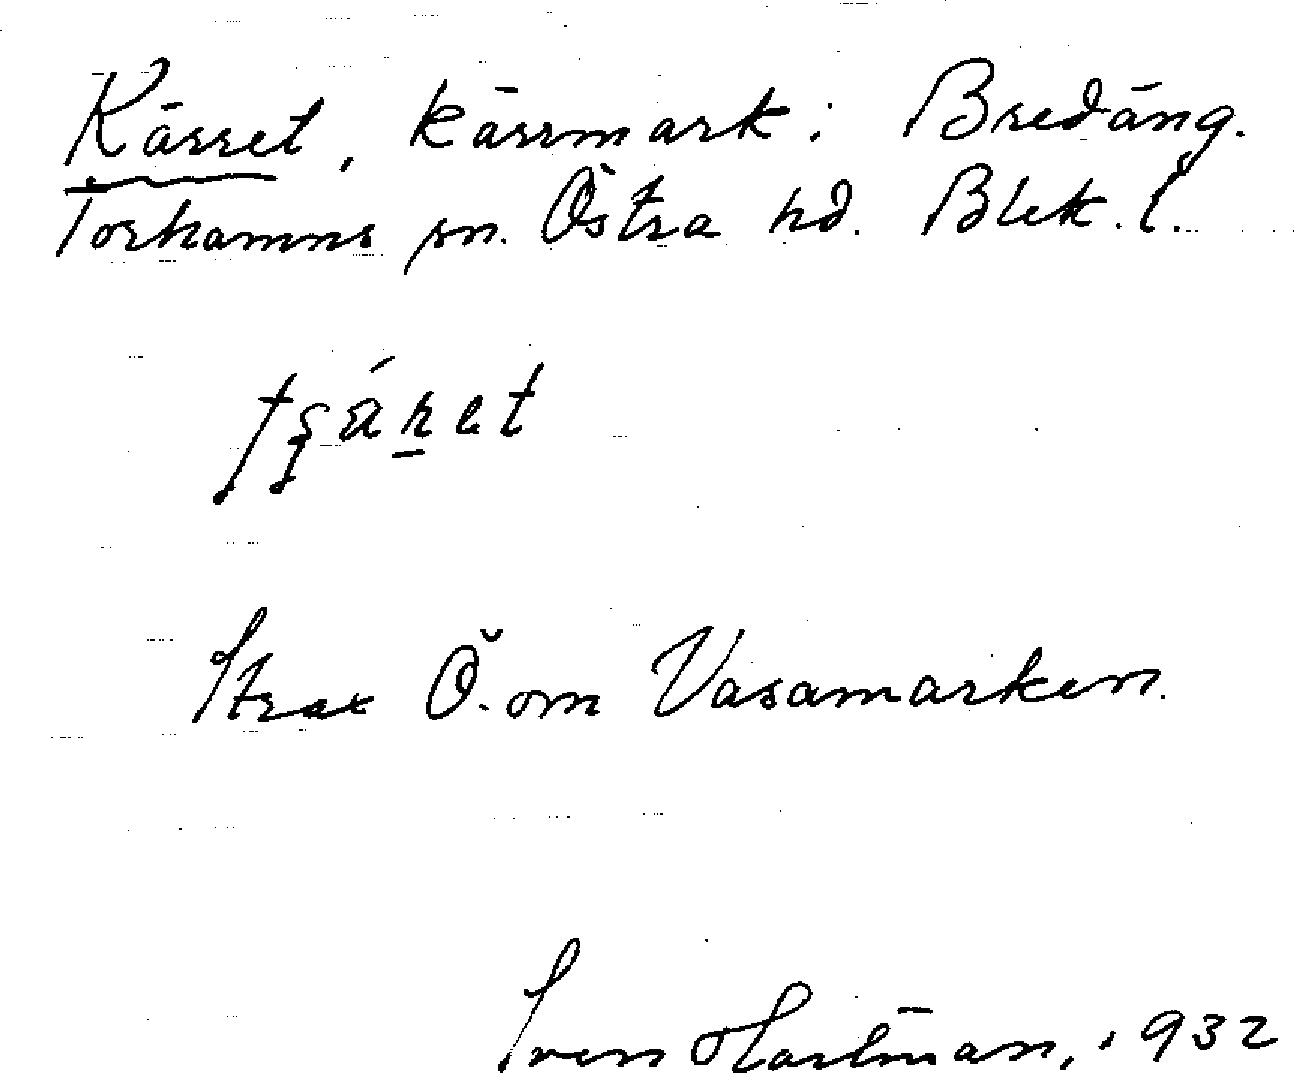 Kärret, kärrmark i Bredäng.
Torhamns sn. Östra hd. Blek. l.
Strax Ö. om Vasamarken.
Sven Hartman, 1932